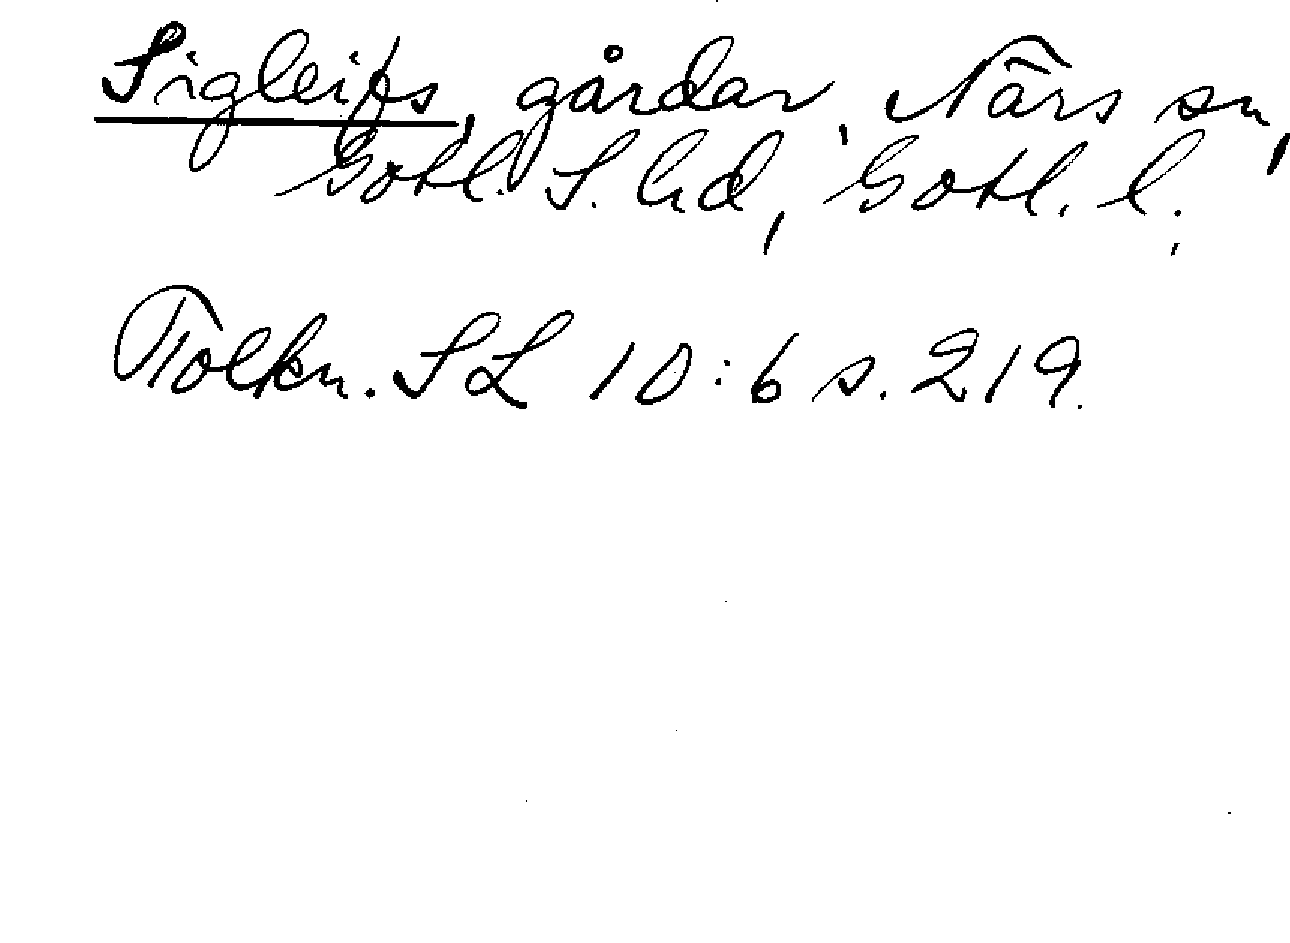 Sigleifs, gårdar, Närs sn,
Gotl. S. hd, Gotl. l.
Tolkn. SL 10:6 s. 219.